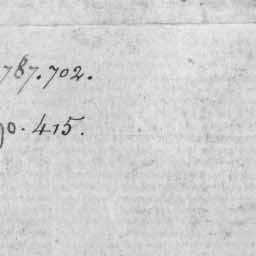 787.702.
90.415.